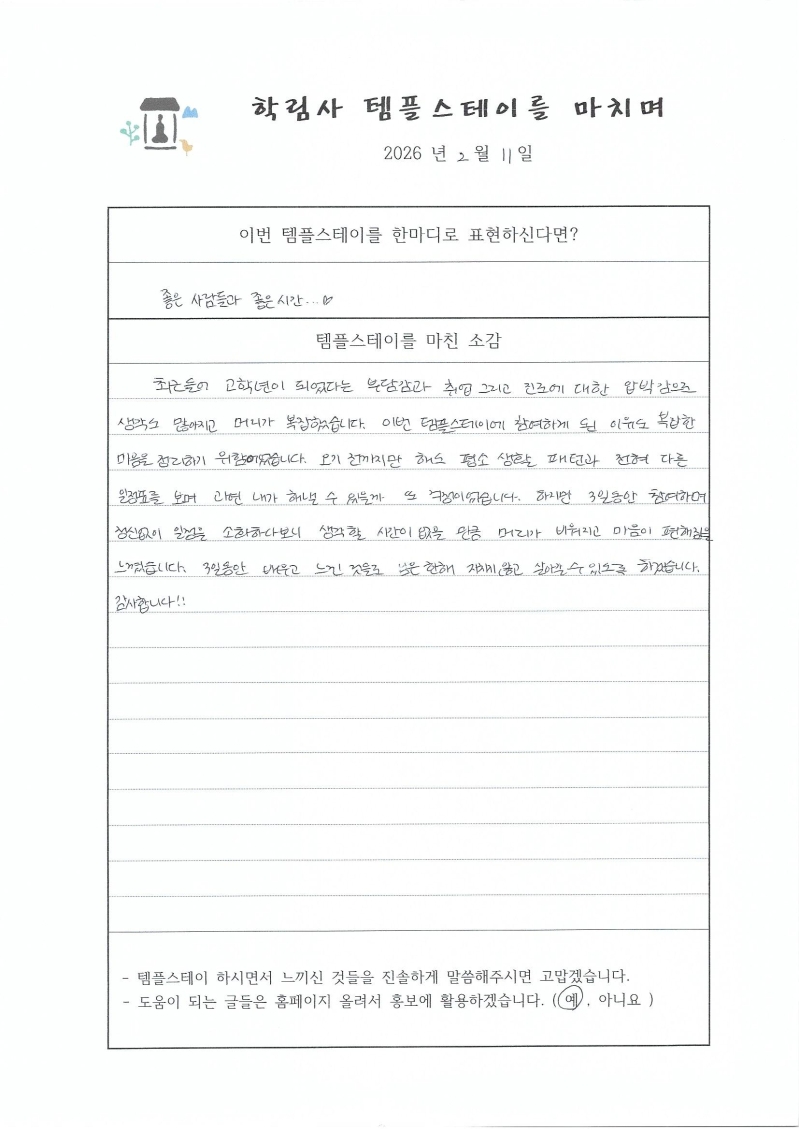 학림사 템플스테이를 마치며
2026 년 2 월 11 일
이번 템플스테이를 한마디로 표현하신다면?
좋은 사람들과 좋은 시간...♡
템플스테이를 마친 소감
최근들어 고학년이 되었다는 부담감과 취업 그리고 진로에 대한 압박감으로
생각도 많아지고 머리가 복잡했습니다. 이번 템플스테이에 참여하게 된 이유도 복잡한
마음을 정리하기 위함이었습니다. 오기 전까지만 해도 평소 생활 패턴과 전혀 다른
일정표를 보며 과연 내가 해낼 수 있을까 또 걱정이었습니다. 하지만 3일동안 참여하며
정신없이 일정을 소화하다보니 생각할 시간이 없을 만큼 머리가 비워지고 마음이 편해짐을
느꼈습니다. 3일동안 배우고 느낀 것들로 남은 한해 지치지 않고 살아갈 수 있도록 하겠습니다.
감사합니다!!
- 템플스테이 하시면서 느끼신 것들을 진솔하게 말씀해주시면 고맙겠습니다.
- 도움이 되는 글들은 홈페이지 올려서 홍보에 활용하겠습니다. ( 예 , 아니요 )